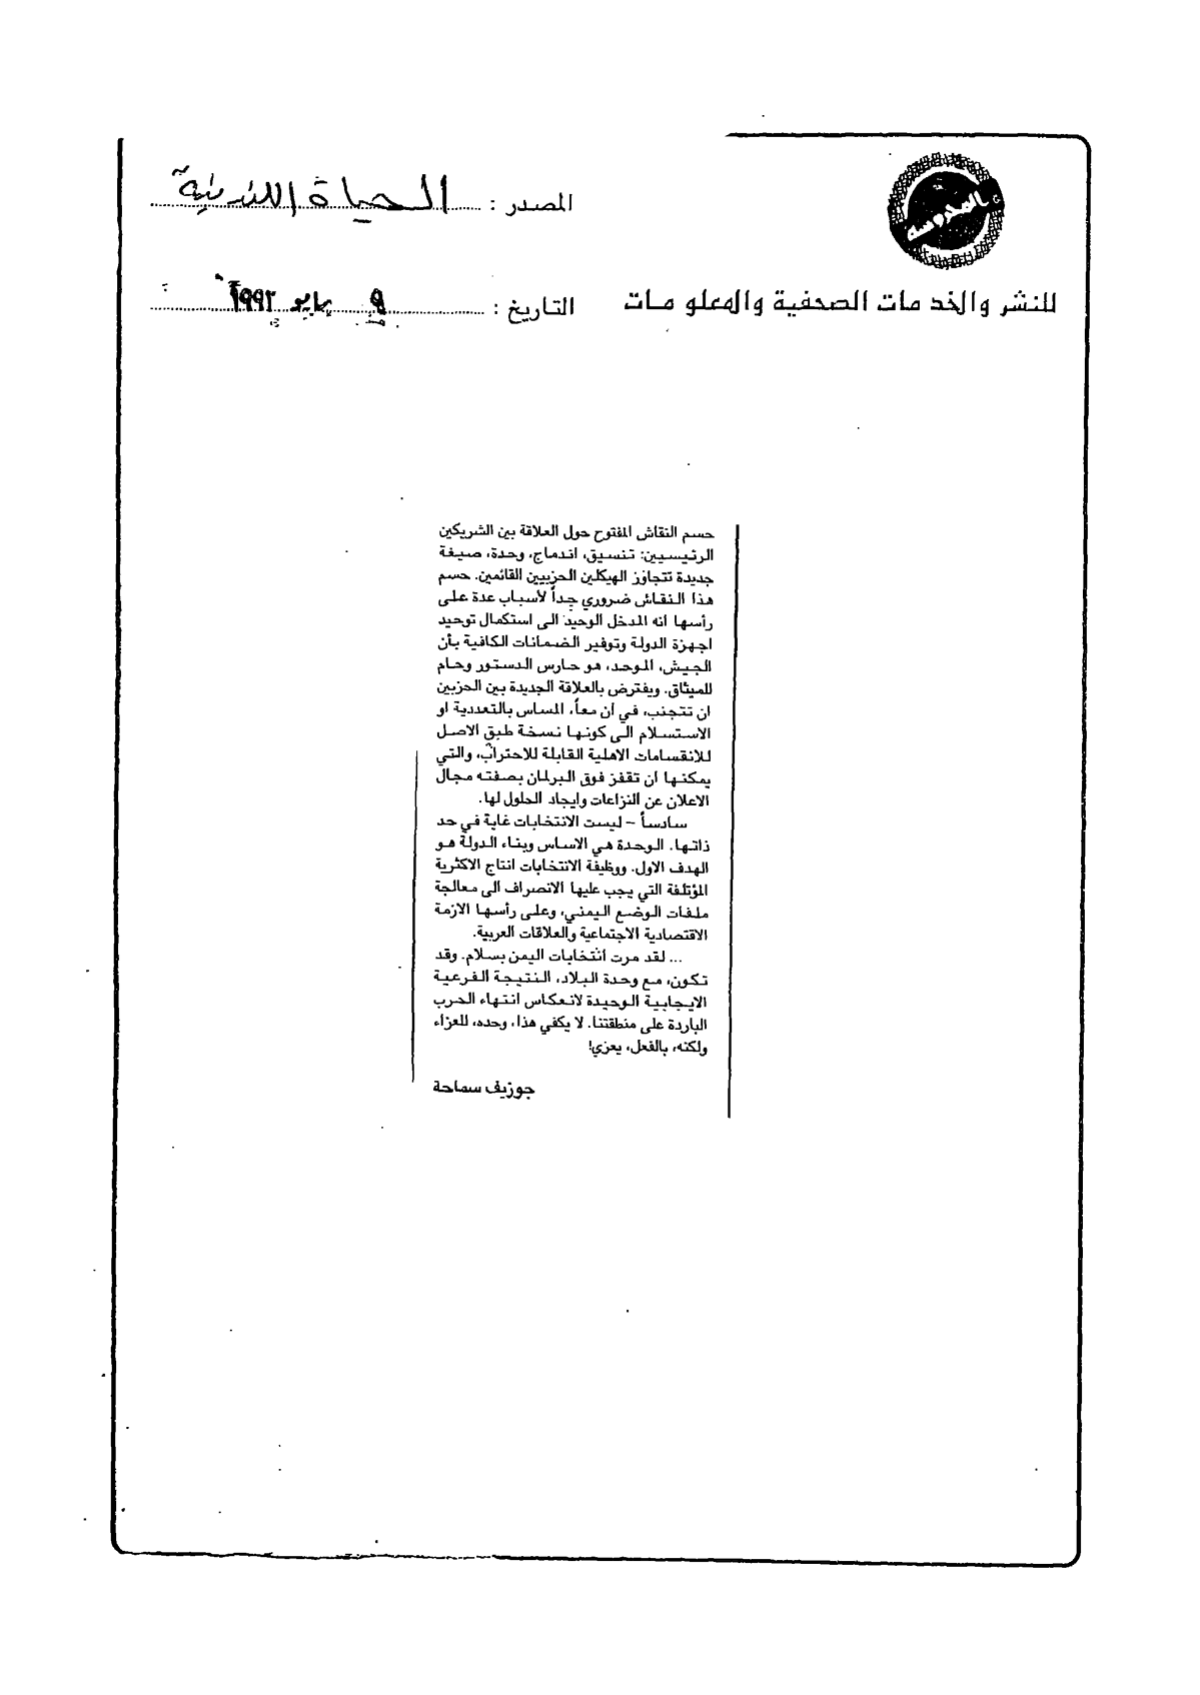 المصدر : الحياة اللندنية
للنشر والخدمات الصحفية والمعلومات
التاريخ : ٩ مايو ١٩٩٣
حسم النقاش المفتوح حول العلاقة بين الشريكين
الرئيسيين: تنسيق، اندماج، وحدة، صيغة
جديدة تتجاوز الهيكلين الحزبيين القائمين. حسم
هذا النقاش ضروري جداً لأسباب عدة على
رأسها انه المدخل الوحيد الى استكمال توحيد
اجهزة الدولة وتوفير الضمانات الكافية بأن
الجيش، الموحد، هو حارس الدستور وحام
للميثاق. ويفترض بالعلاقة الجديدة بين الحزبين
ان تتجنب، في آن معاً، المساس بالتعددية او
الاستسلام الى كونها نسخة طبق الاصل
للانقسامات الاهلية القابلة للاحتراب، والتي
يمكنها ان تقفز فوق البرلمان بصفته مجال
الاعلان عن النزاعات وايجاد الحلول لها.
سادساً – ليست الانتخابات غاية في حد
ذاتها. الوحدة هي الاساس وبناء الدولة هو
الهدف الاول. ووظيفة الانتخابات انتاج الاكثرية
المؤتلفة التي يجب عليها الانصراف الى معالجة
ملفات الوضع اليمني، وعلى رأسها الازمة
الاقتصادية الاجتماعية والعلاقات العربية.
... لقد مرت انتخابات اليمن بسلام. وقد
تكون، مع وحدة البلاد، النتيجة الفرعية
الايجابية الوحيدة لانعكاس انتهاء الحرب
الباردة على منطقتنا. لا يكفي هذا، وحده، للعزاء
ولكنه، بالفعل، يعزي!
جوزيف سماحة